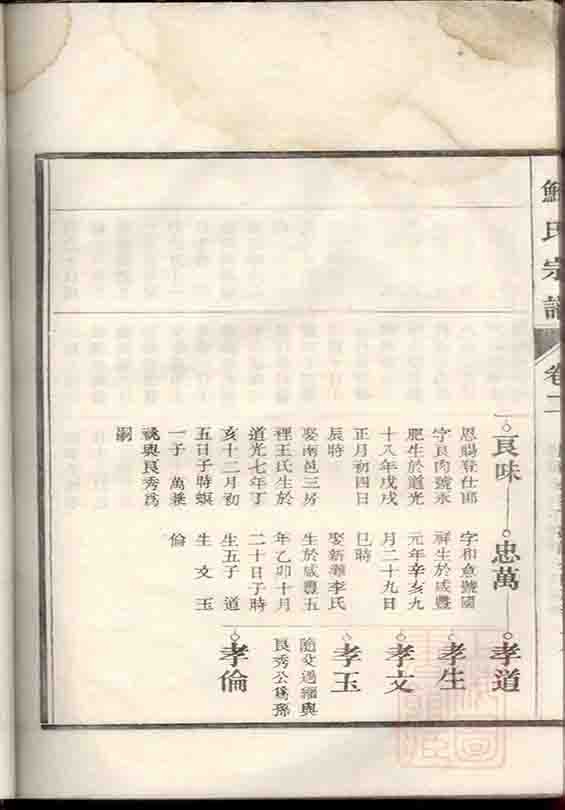 鮑氏宗譜
卷二
良味
恩賜登仕郎
字良肉號永
肥生於道光
十八年戊戌
正月初四日
辰時
娶南邑三房
裡王氏生於
道光七年丁
亥十二月初
五日子時螟
一子 萬兼
祧與良秀為
嗣
忠萬
字和意號國
祥生於咸豐
元年辛亥九
月二十九日
巳時
娶新華李氏
生於咸豐五
年乙卯十月
二十日子時
生五子 道
生 文 玉
倫
孝道
孝生
孝文
孝玉
隨父過繼與
良秀公為孫
孝倫